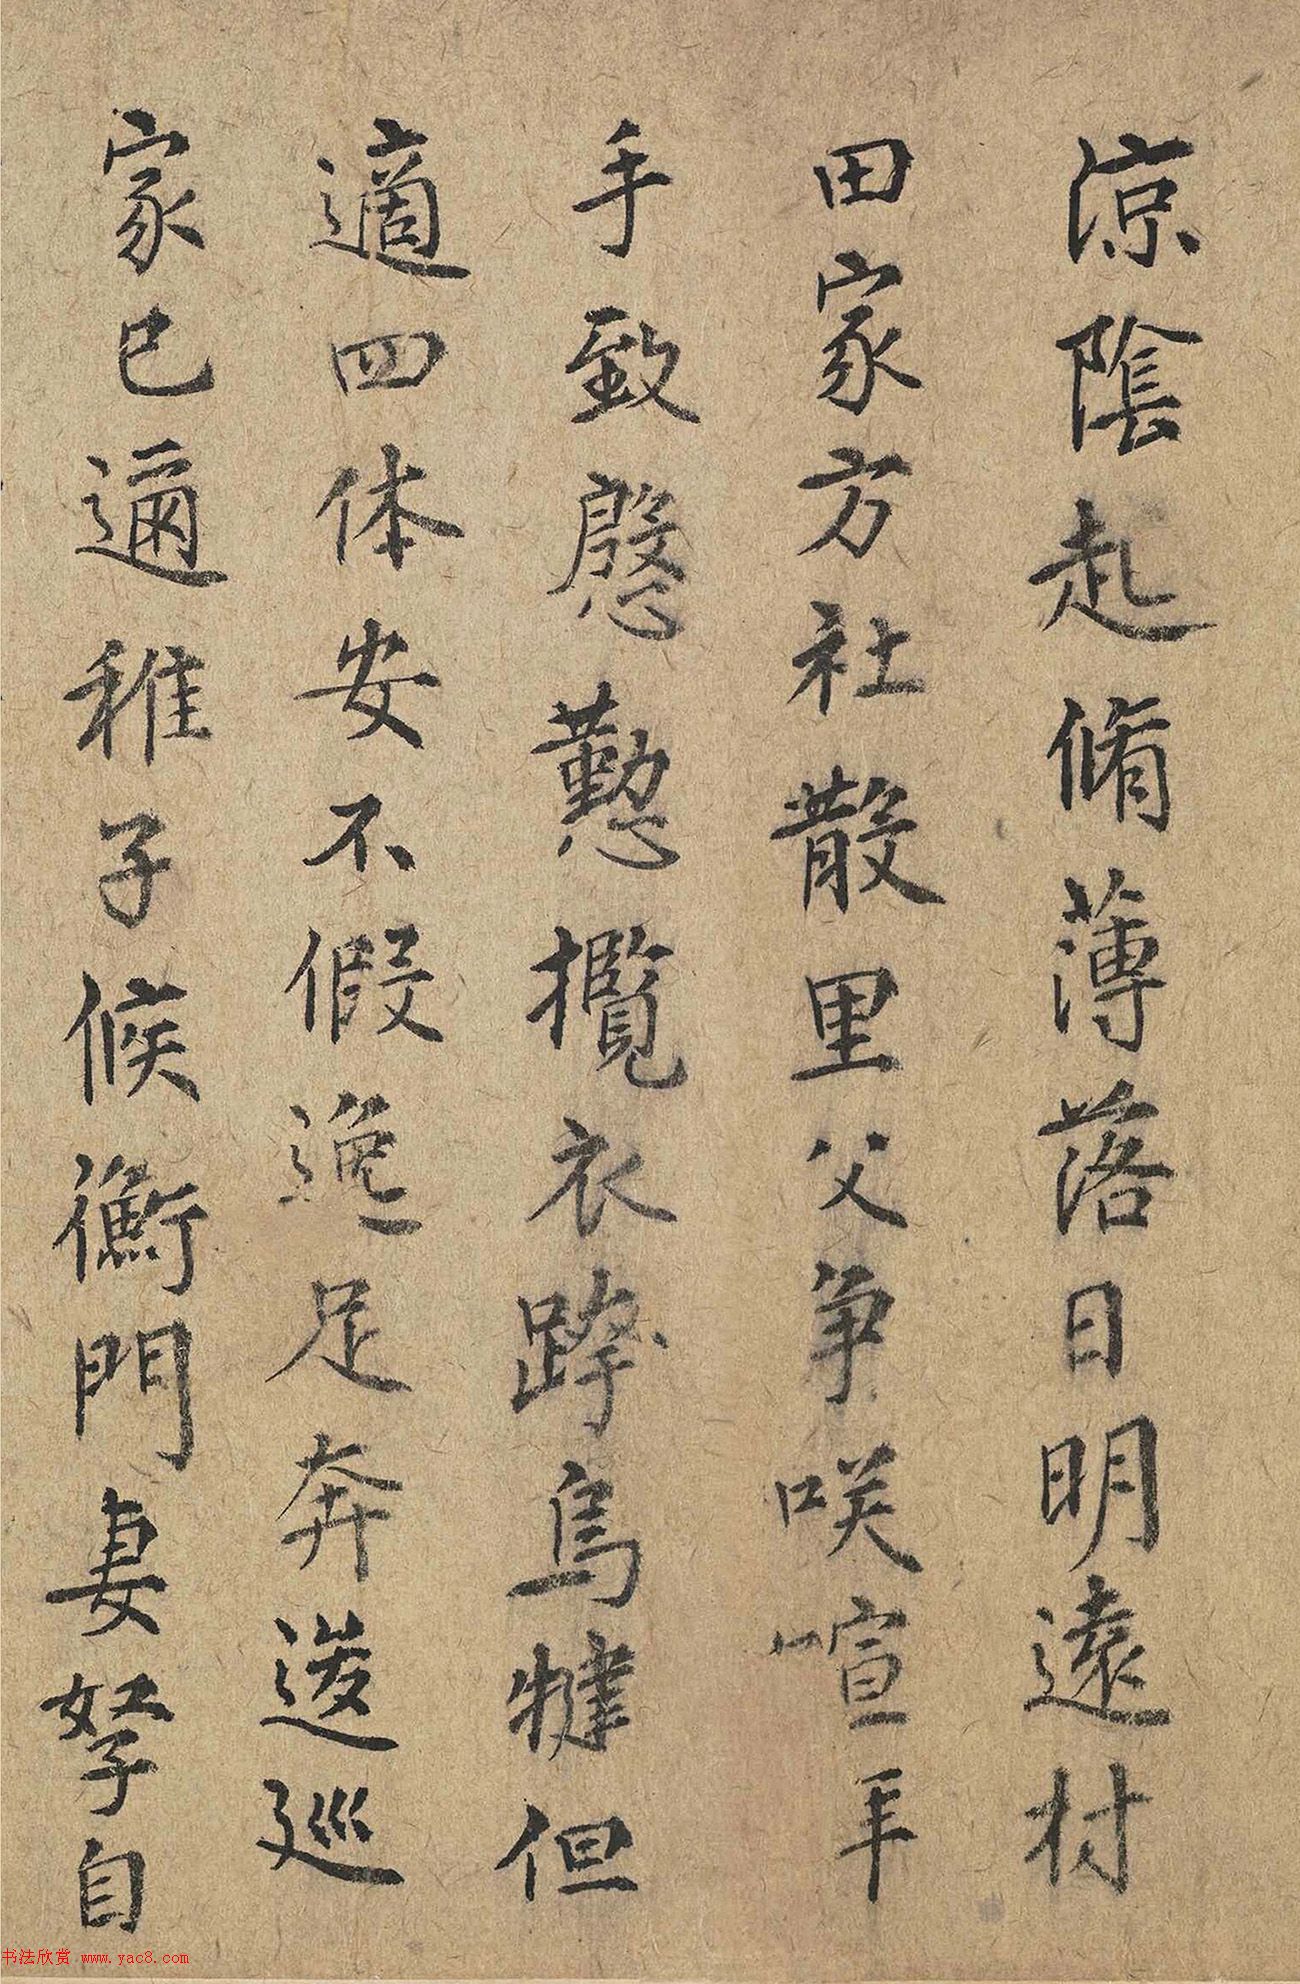 涼陰起脩薄落日明遠村
田家方社散里父争咲喧年
手致慇懃攬衣跨烏犍但
適四体安不假逸足奔逡巡
家已邇稚子候衡門妻孥自
书法欣赏 www.yac8.com